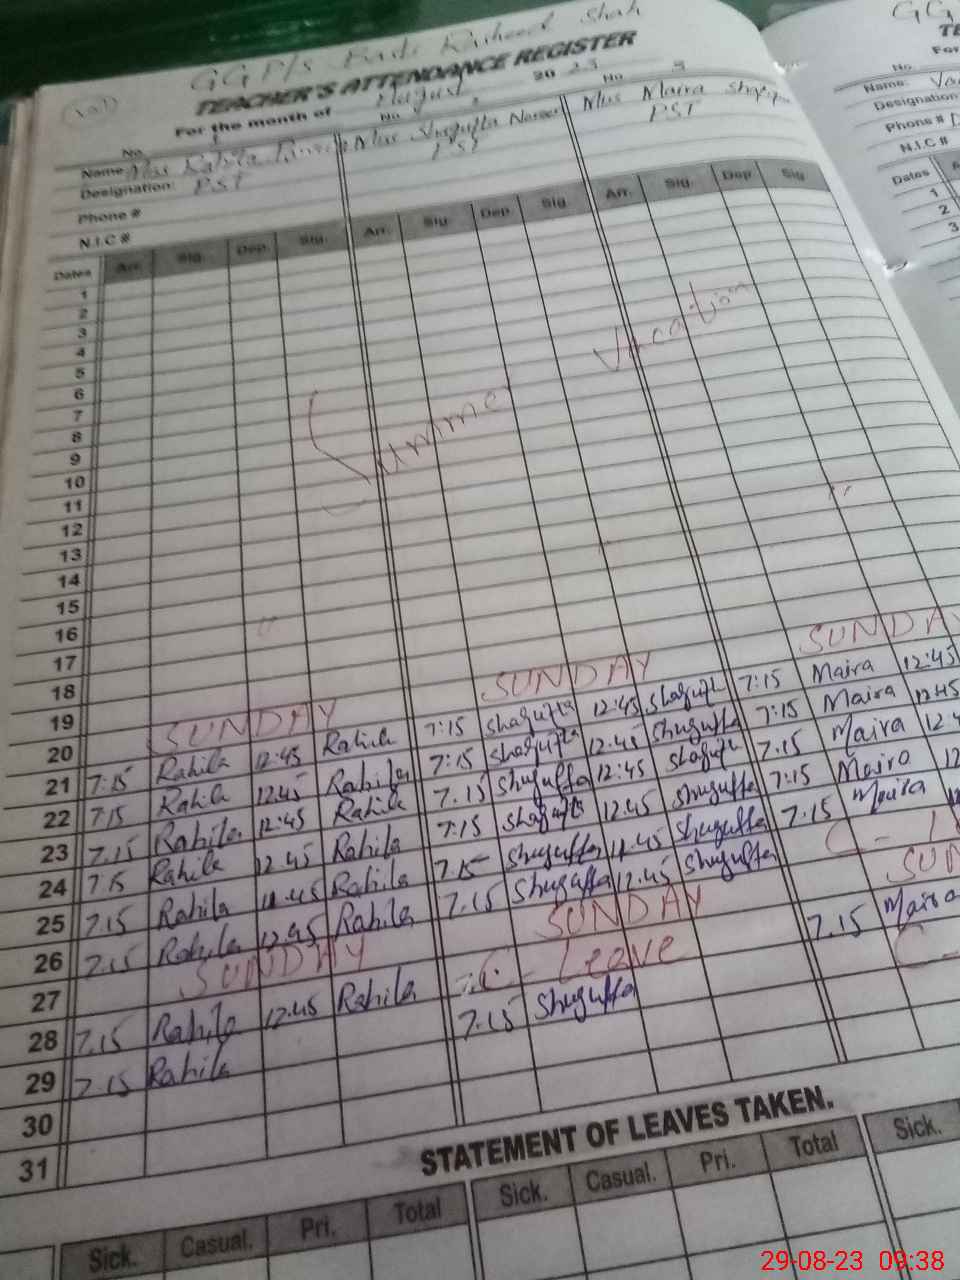 GGP/S Rasheed Shah
TEACHER'S ATTENDANCE REGISTER
For the month of August 20 23
No. 1 No. 2 No. 3
Name Miss Rahila Miss Shagufta Miss Maira
Designation: PST PST PST
Phone #
N.I.C #
Dates Arr. Sig. Dep. Sig. Arr. Sig. Dep. Sig. Arr. Sig. Dep. Sig
1
2
3
4
5
6
7
8
9
10
11
12
13
14
15
16
17
18
19
Summer Vacation
20 SUNDAY SUNDAY SUNDAY
21 7:15 Rahila 12:45 Rahila 7:15 Shagufta 12:45 Shagufta 7:15 Maira 12:45
22 7:15 Rahila 12:45 Rahila 7:15 Shagufta 12:45 Shugufta 7:15 Maira 12:45
23 7.15 Rahila 12:45 Rahila 7.15 Shugufta 12:45 Shagufta 7.15 Maira
24 7.15 Rahila 12.45 Rahila 7:15 Shagufta 12.45 Shugufta 7:15 Maira
25 7.15 Rahila 11.45 Rahila 7.15 Shugufta 11.45 Shugufta 7.15 Maira
26 7.15 Rahila 12.45 Rahila 7.15 Shugufta 12.45 Shugufta C-
27 SUNDAY SUNDAY SUN
28 7.15 Rahila 12.45 Rahila C- Leave 7.15 Maira
29 7.15 Rahila 7.15 Shugufta C-
30
31
STATEMENT OF LEAVES TAKEN.
Sick. Casual. Pri. Total Sick. Casual. Pri. Total Sick.
GG
TE
For
No.
Name:
Designation
Phone #
N.I.C #
Dates A
1
2
3
29-08-23 09:38